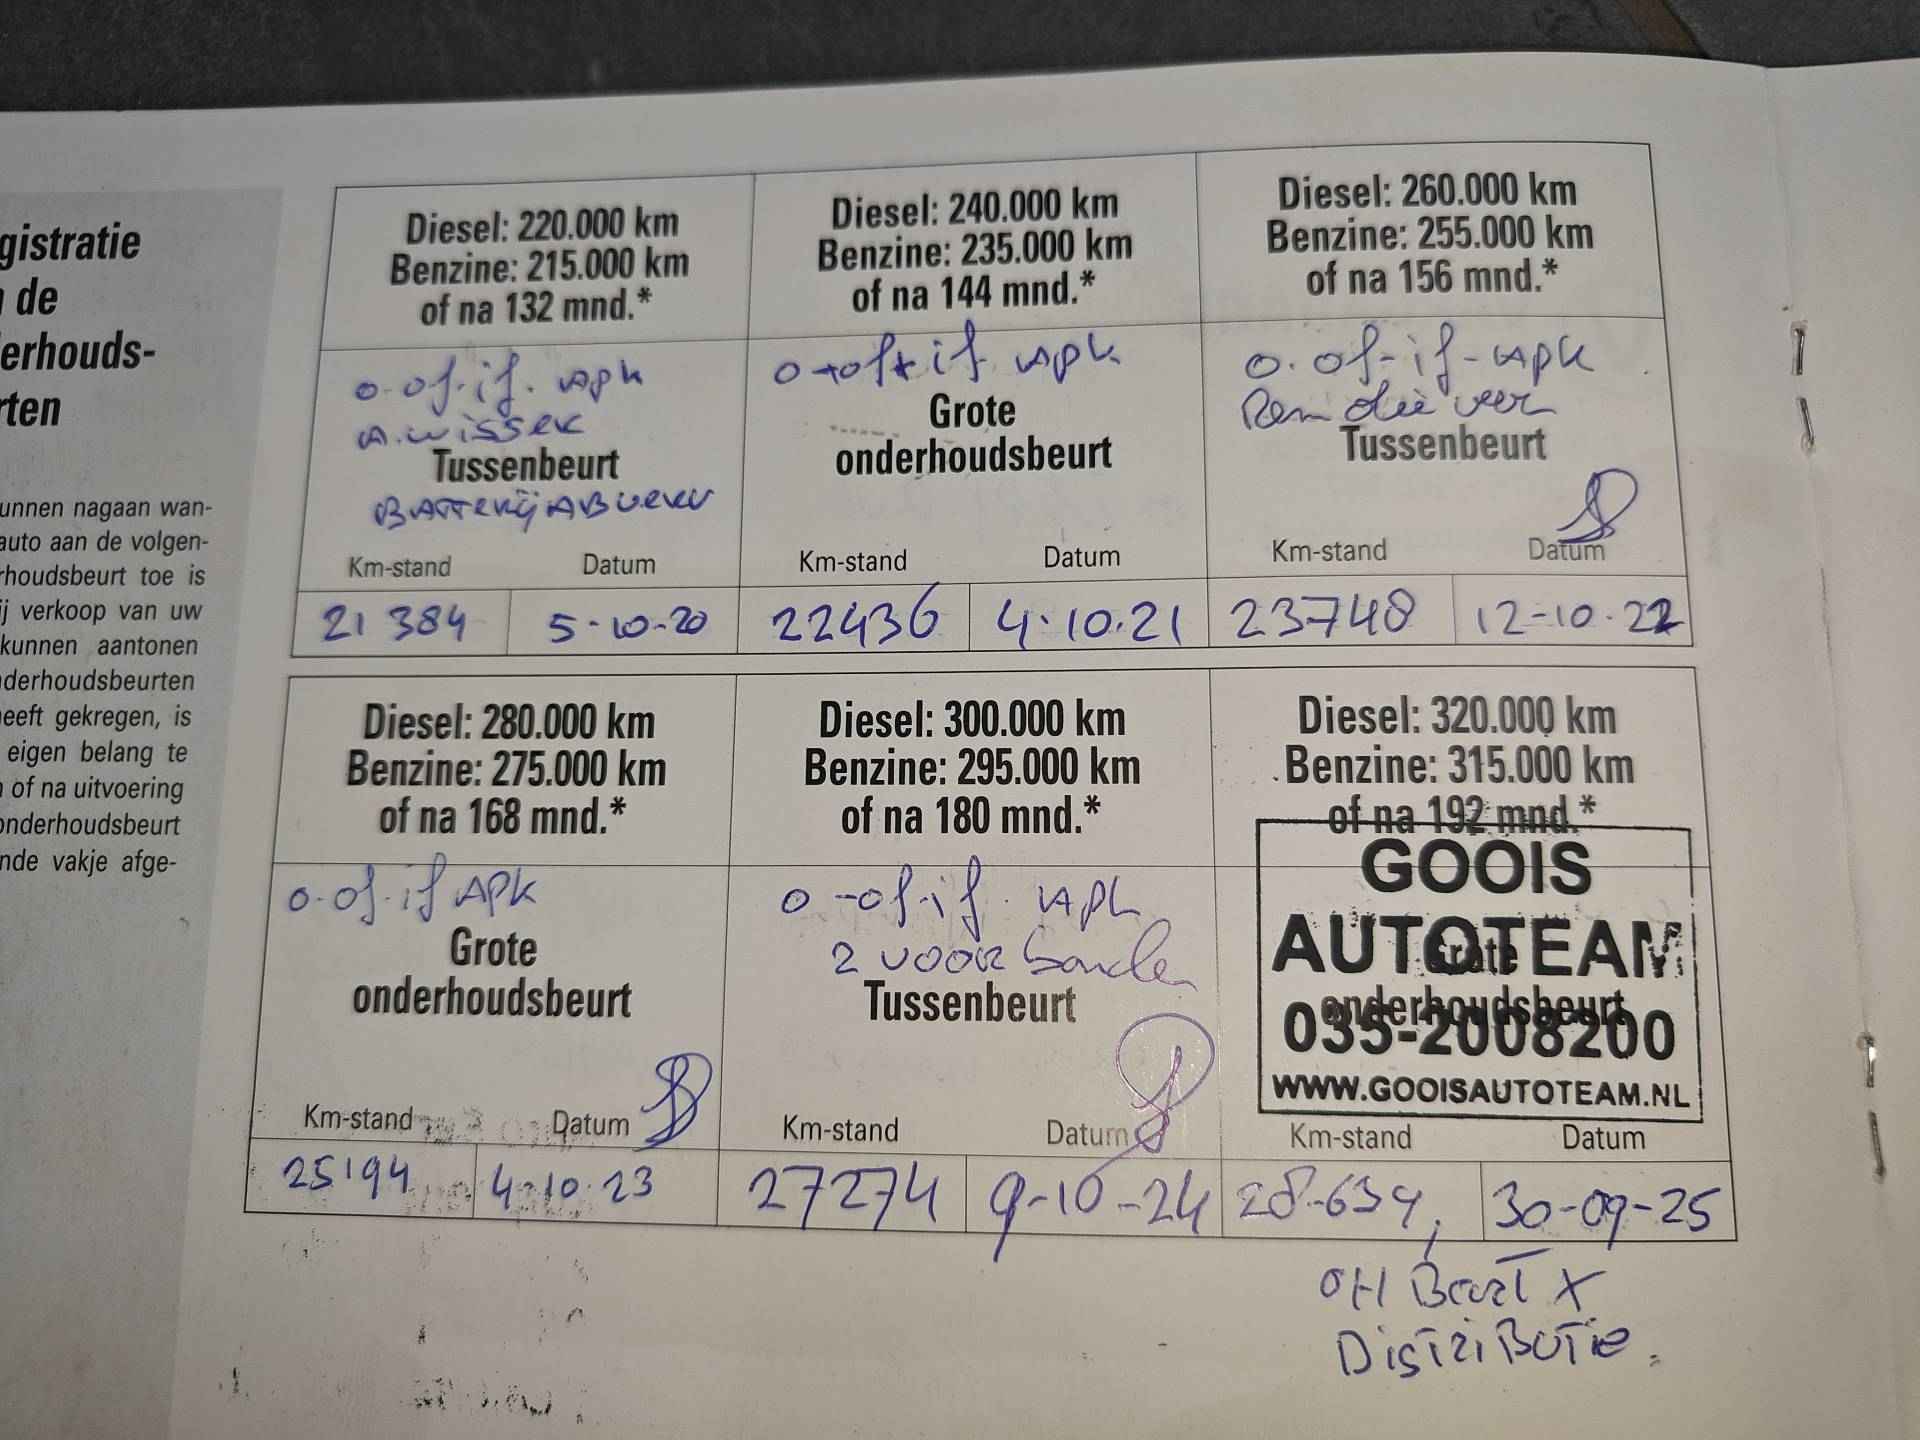 gistratie
de
erhouds-
rten
unnen nagaan wan-
auto aan de volgen-
rhoudsbeurt toe is
ij verkoop van uw
kunnen aantonen
derhoudsbeurten
eeft gekregen, is
eigen belang te
of na uitvoering
onderhoudsbeurt
nde vakje afge-
Diesel: 220.000 km
Benzine: 215.000 km
of na 132 mnd.*
o-of-if. APK
A.wisser
Tussenbeurt
BATTERIJ ABVOER
Km-stand Datum
21 384 5-10-20
Diesel: 240.000 km
Benzine: 235.000 km
of na 144 mnd.*
o+of+if. APK
Grote
onderhoudsbeurt
Km-stand Datum
22436 4.10.21
Diesel: 260.000 km
Benzine: 255.000 km
of na 156 mnd.*
o.of-if-APK
Rem olie
Tussenbeurt
Km-stand Datum
23748 12-10.22
Diesel: 280.000 km
Benzine: 275.000 km
of na 168 mnd.*
o-of.if APK
Grote
onderhoudsbeurt
Km-stand Datum
25194 4-10.23
Diesel: 300.000 km
Benzine: 295.000 km
of na 180 mnd.*
o-of.if. APK
2 voor banden
Tussenbeurt
Km-stand Datum
27274 9-10-24
Diesel: 320.000 km
Benzine: 315.000 km
of na 192 mnd.*
GOOIS
AUTOTEAM
Grote
onderhoudsbeurt
035-2008200
WWW.GOOISAUTOTEAM.NL
Km-stand Datum
28-634, 30-09-25
OH Beurt X
Distributie.